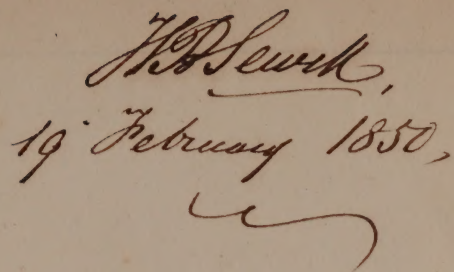 H R Sewell,
19 February 1850,